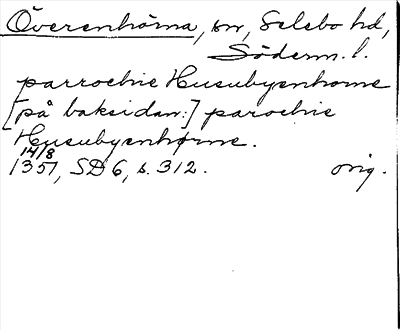 Överenhörna, sn, Selebo hd,
Söderm. l.
parrochie Husubyenhorne
[på baksidan:] parochie
Husubyenhørne.
14/8
1357, SD 6, s. 312. orig.